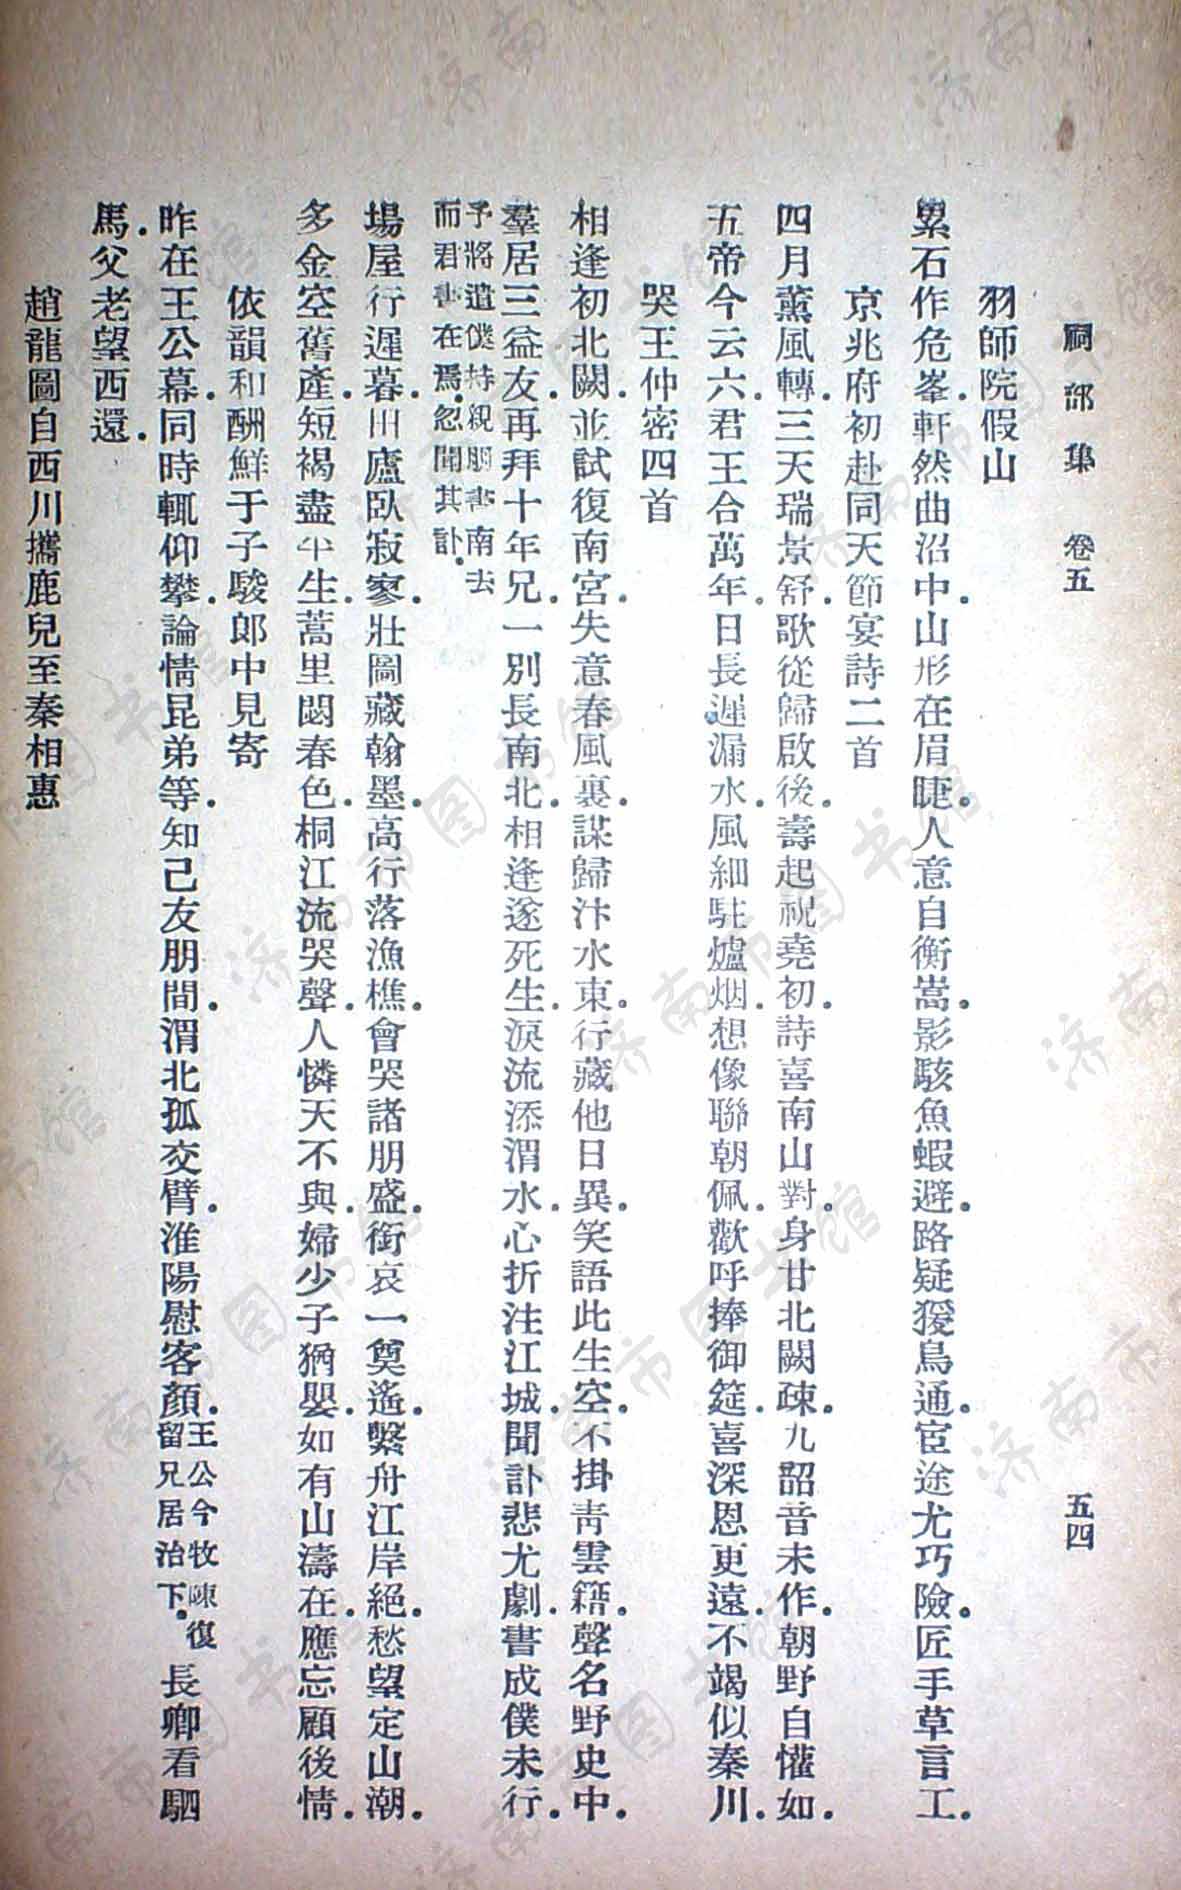 嗣部集　卷五　五四
羽師院假山
累石作危峯．軒然曲沼中．山形在眉睫．人意自衡嵩．影駭魚蝦避．路疑猨鳥通．宦途尤巧險．匠手草言工．
京兆府初赴同天節宴詩二首
四月薰風轉．三天瑞景舒．歌從歸啟後．壽起祝堯初．詩喜南山對．身甘北闕疎．九韶音未作．朝野自懽如．
五帝今云六．君王合萬年．日長遲漏水．風細駐爐烟．想像聯朝佩．歡呼捧御筵．喜深恩更遠．不竭似秦川．
哭王仲密四首
相逢初北闕．並試復南宮．失意春風裏．謀歸汴水東．行藏他日異．笑語此生空．不掛靑雲籍．聲名野史中．
羣居三益友．再拜十年兄．一別長南北．相逢遂死生．淚流添渭水．心折注江城．聞訃悲尤劇．書成僕未行．
予將遣僕持親朋書南去
而君書在焉．忽聞其訃．
場屋行遲暮．田廬臥寂寥．壯圖藏翰墨．高行落漁樵．會哭諸朋盛．銜哀一奠遙．繫舟江岸絕．愁望定山潮．
多金空舊產．短褐盡平生．蒿里閟春色．桐江流哭聲．人憐天不與．婦少子猶嬰．如有山濤在．應忘顧後情．
依韻和酬鮮于子駿郎中見寄
昨在王公幕．同時輒仰攀．論情昆弟等．知己友朋間．渭北孤交臂．淮陽慰客顏．王公今牧陳復留兄居治下．長卿看駟
馬．父老望西還．
趙龍圖自西川攜鹿兒至秦相惠